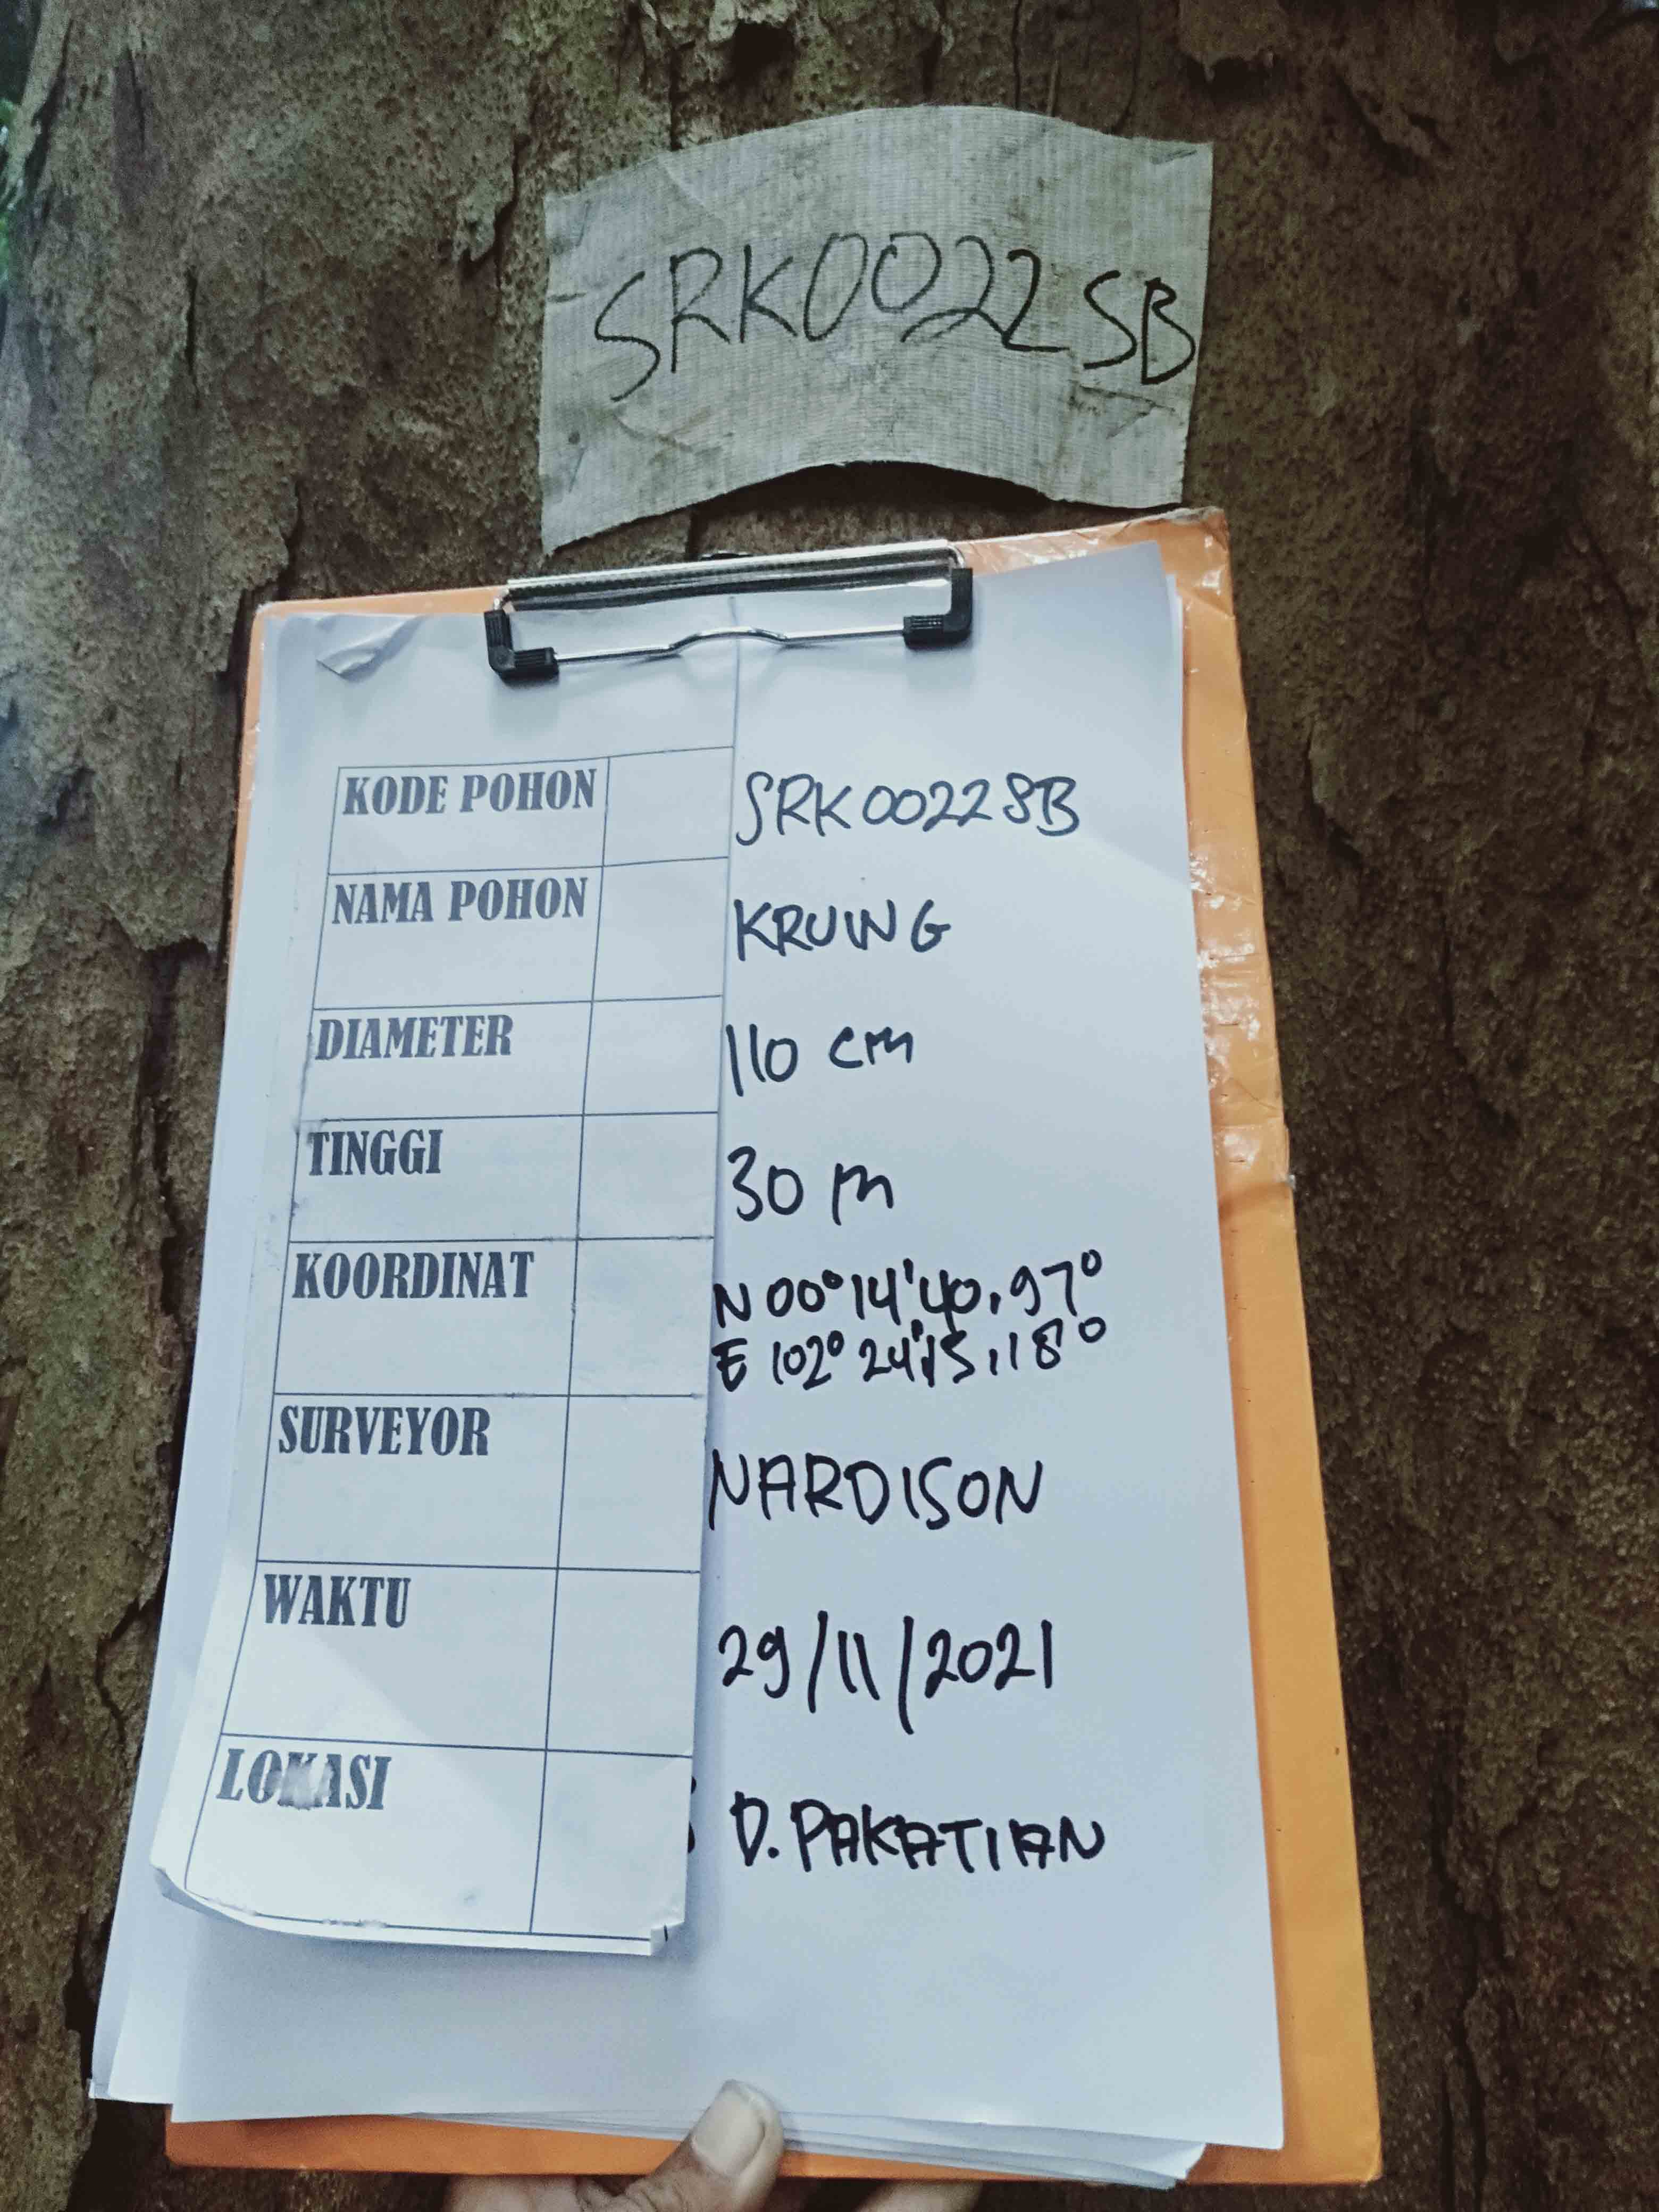 SRK0022SB
KODE POHON SRK0022SB
NAMA POHON KRUING
DIAMETER 110 cm
TINGGI 30 m
KOORDINAT N 00°14'40,97°
E 102° 24'15,18°
SURVEYOR NARDISON
WAKTU 29/11/2021
LOKASI D. PAKATIAN